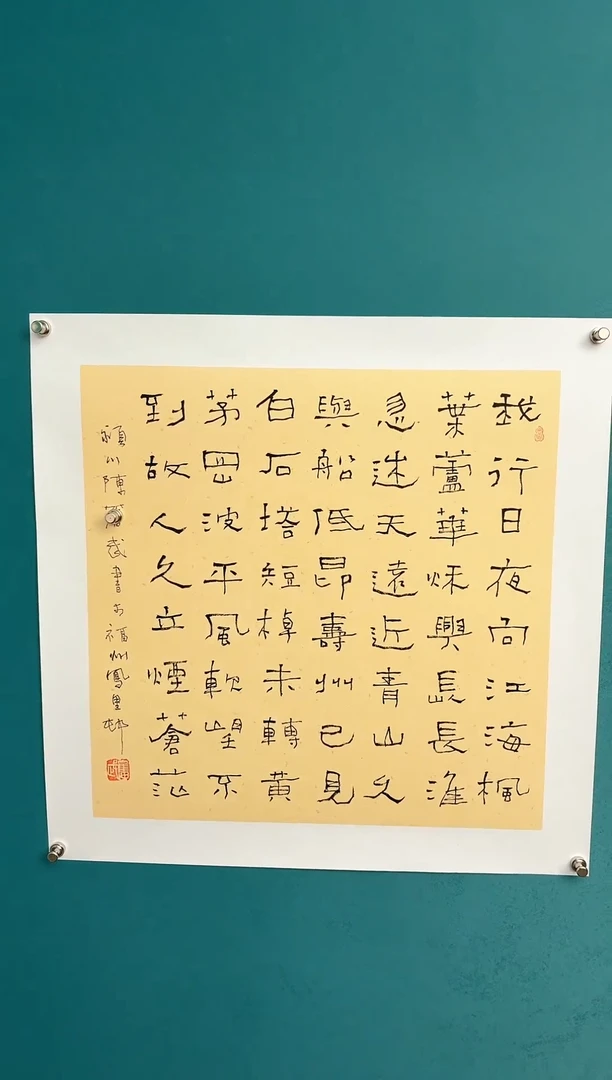 我行日夜向江海楓
葉蘆華秋興長長淮
忽迷天遠近青山久
與船低昂壽州已見
白石塔短棹未轉黃
茅岡波平風軟望不
到故人久立煙蒼茫
潁川陳武書於福州鳳里邨